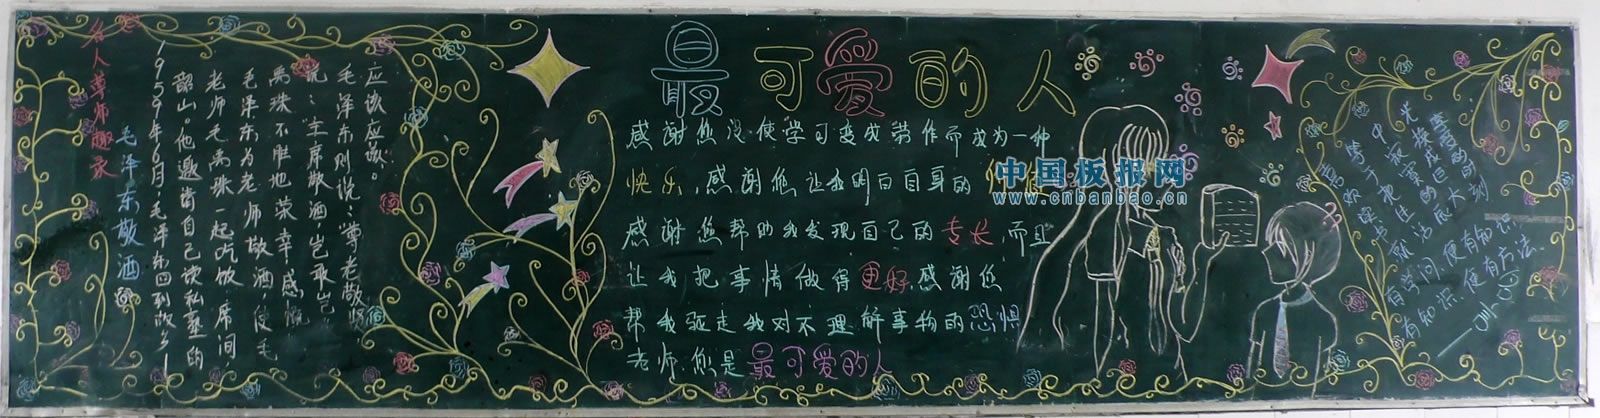 名人尊师趣录
毛泽东敬酒
1959年6月毛泽东回到故乡
韶山。他邀请自己读私塾的
老师毛禹珠一起吃饭。席间
毛泽东为老师敬酒,使毛
禹珠不胜地荣幸,感慨
说:"主席敬酒,岂敢岂
毛泽东则说:"尊老敬贤
应该应该。
最可爱的人
感谢您没使学习变成劳作而成为一种
快乐,感谢您让我明白自身的
感谢您帮助我发现自己的专长,而且
让我把事情做得更好,感谢您
帮我驱走我对不理解事物的恐惧
老师.您是最可爱的人
中国板报网
www.cnbanbao.cn
有学问,便有知识
有知识,便有方法